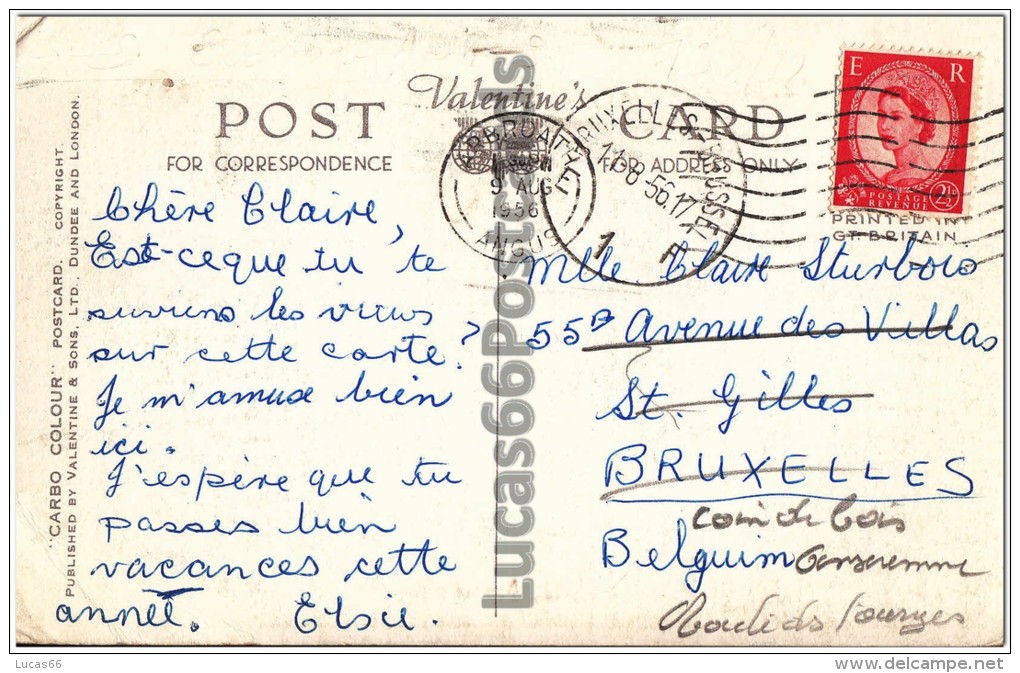 POST
Valentine's
CARD
FOR CORRESPONDENCE
FOR ADDRESS ONLY
"CARBO COLOUR" POSTCARD. COPYRIGHT.
PUBLISHED BY VALENTINE & SONS, LTD., DUNDEE AND LONDON.
9 AUG
1956
ANGUS
BRUXELLES
BRUSSEL
11-8-56.17
E R
POSTAGE
REVENUE
2½D
PRINTED IN
GT. BRITAIN
Chère Claire,
Est-ceque tu te
suviens les vues
sur cette carte?
Je m'amuse bien
ici.
J'espère que tu
passes bien
vacances cette
année. Elsie.
Mlle Claire Sturbois
55B Avenue des Villas
St. Gilles
BRUXELLES
Belguim
coin de bois
Lucas66Postcards
Lucas66
www.delcampe.net